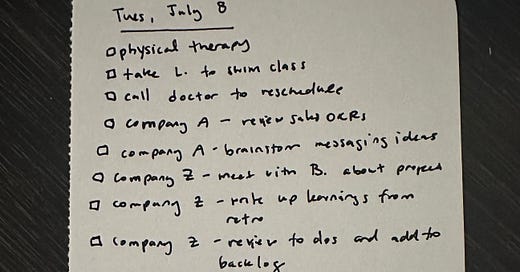 Tues, July 8
physical therapy
take L. to swim class
call doctor to reschedule
company A - review sales OKRs
company A - brainstorm messaging ideas
company Z - meet with B. about project
company Z - write up learnings from
retro
company Z - review to dos and add to
backlog